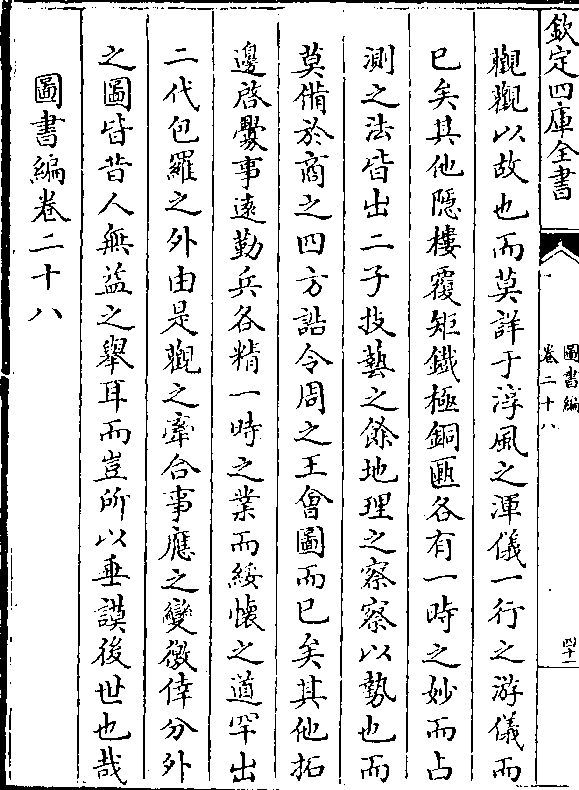 欽定四庫全書
圖書編
卷二十八
四十一
觀觀以故也而莫詳于淳風之渾儀一行之游儀而
已矣其他隱樓覆矩鐵極銅匭各有一時之妙而占
測之法皆出二子技藝之餘地理之察察以勢也而
莫備於商之四方誥令周之王會圖而已矣其他拓
邊啓釁事逺勤兵各精一時之業而綏懷之道罕出
二代包羅之外由是觀之牽合事應之變徼倖分外
之圖皆昔人無益之舉耳而豈所以垂謨後世也哉
圖書編卷二十八